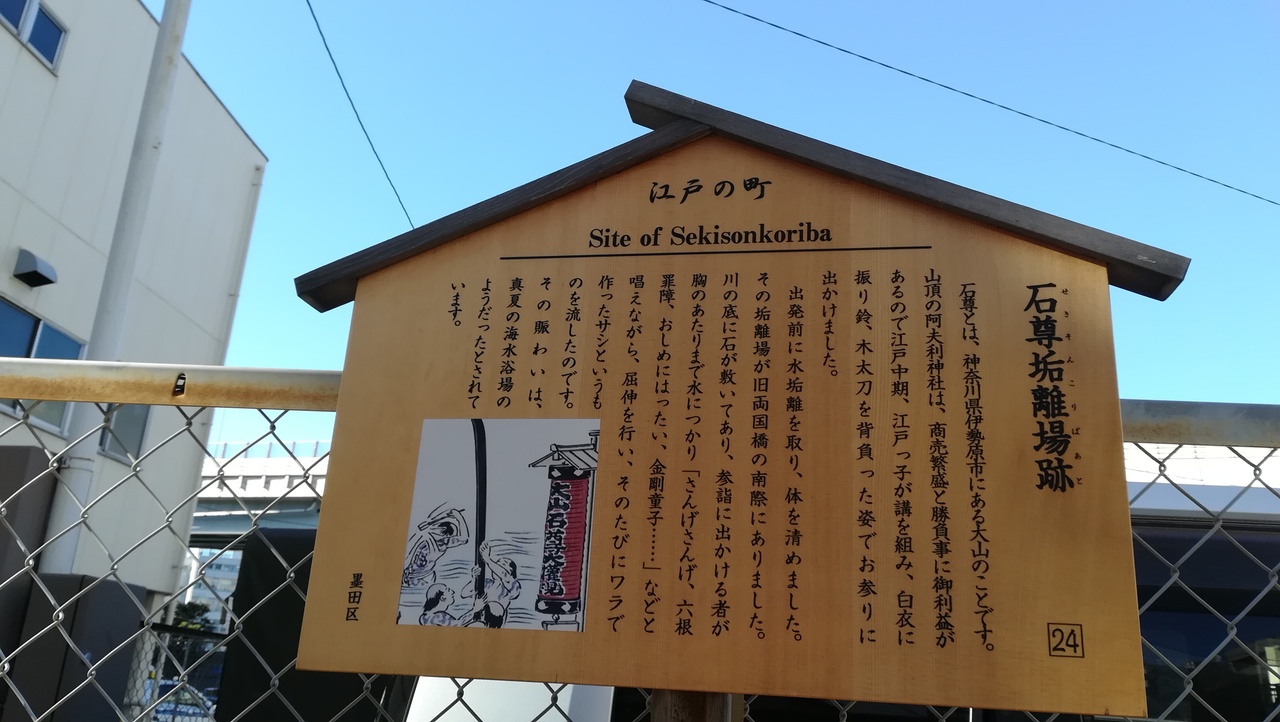 江戸の町
Site of Sekisonkoriba
石尊垢離場跡
せきそんこりばあと
石尊とは、神奈川県伊勢原市にある大山のことです。
山頂の阿夫利神社は、商売繁盛と勝負事に御利益が
あるので江戸中期、江戸っ子が講を組み、白衣に
振り鈴、木太刀を背負った姿でお参りに
出かけました。
出発前に水垢離を取り、体を清めました。
その垢離場が旧両国橋の南際にありました。
川の底に石が敷いてあり、参詣に出かける者が
胸のあたりまで水につかり「さんげさんげ、六根
罪障、おしめにはったい、金剛童子……」などと
唱えながら、屈伸を行い、そのたびにワラで
作ったサシというも
のを流したのです。
その賑わいは、
真夏の海水浴場の
ようだったとされて
います。
大山石尊大権現
墨田区
24